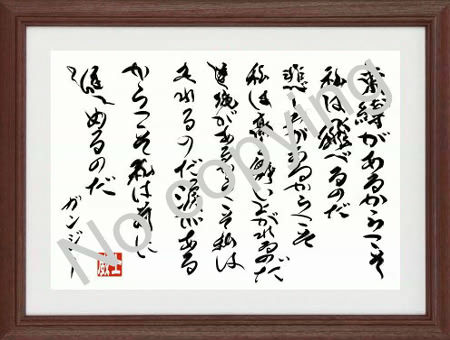 束縛があるからこそ
私は飛べるのだ
悲しみがあるからこそ
私は高く舞い上がれるのだ
逆境があるからこそ私は
走れるのだ涙がある
からこそ私は前に
進めるのだ
ガンジー
No copying